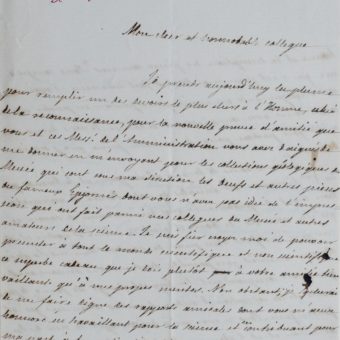 Mon cher et honorable collègue
Je prends aujourd'huy la plume
pour remplir un des devoirs le plus chers à l'Homme, celui
de la reconnaissance, pour la nouvelle preuve d'amitié que
vous et ces Mess. de l'Administration vous avez daigné de
me donner en m'envoyant pour les collections géologiques du
Musée qui sont sous ma direction les Oeufs et autres pièces
du fameux Epiornis dont vous n'avez pas idée de l'impres
sion qui ont fait parmi nos collegues du Musée et autres
amateurs de la science. Je suis fier moi de pouvoir
presenter à tout le monde scientifique et non scientifique
ce superbe cadeau que je dois plutôt à votre amitié bien
vaillant qu'à mes propres merites. Non obstant, je
me faire digne des rapports amicales dont vous m'avez
honoré en travaillant pour la science et en contribuant pour